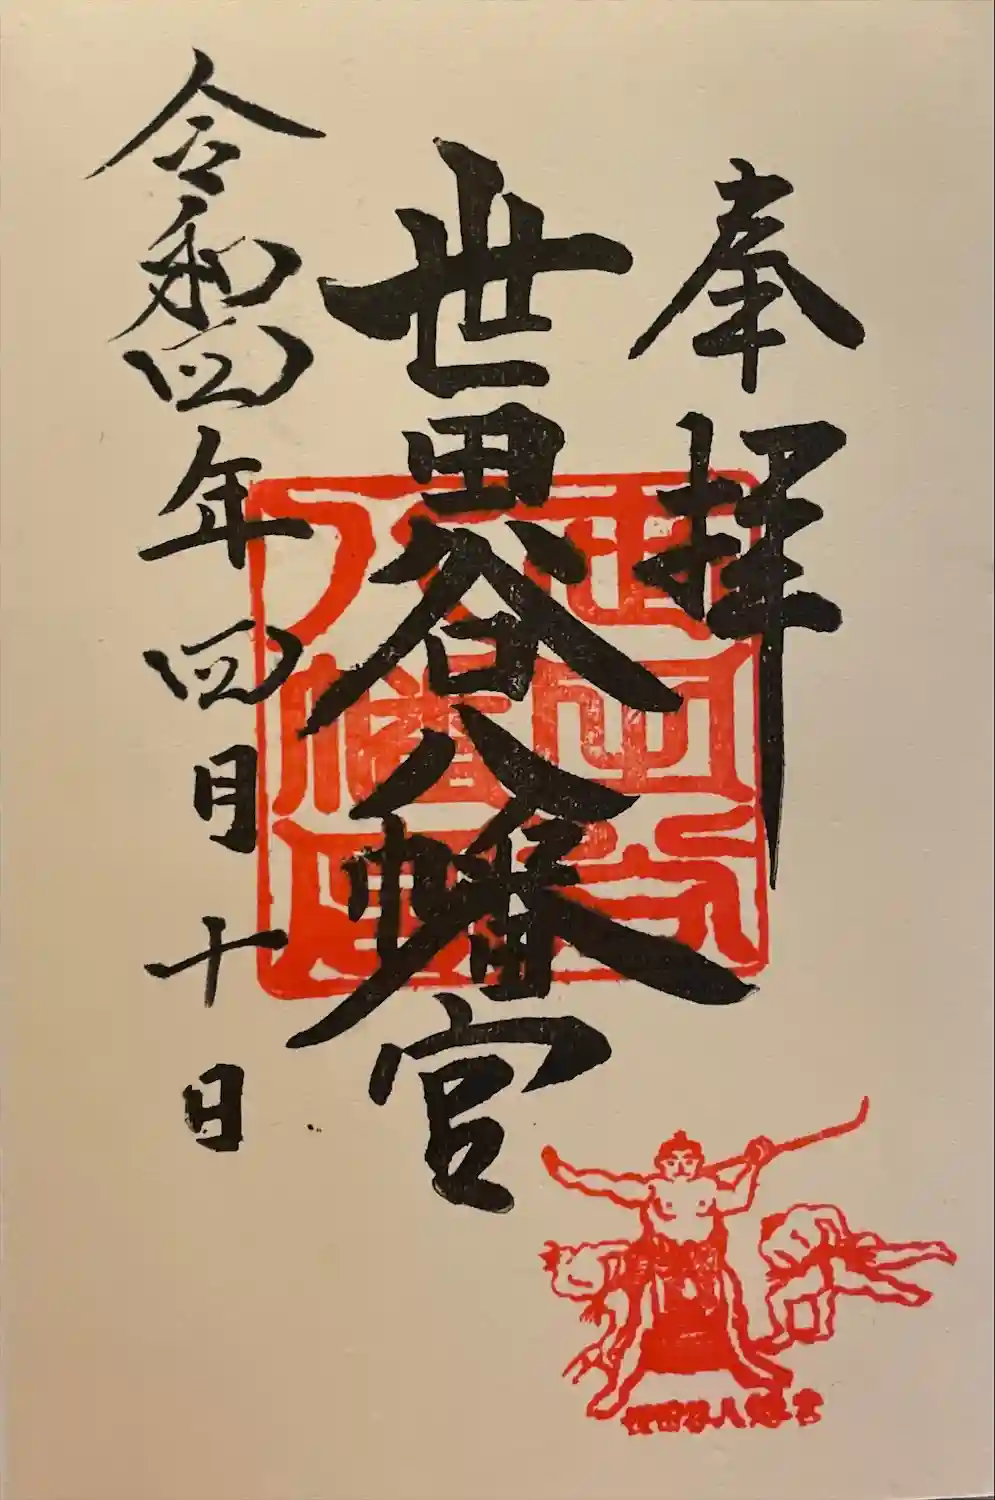 奉拝
世田谷八幡宮
令和四年四月十日
世田谷八幡宮